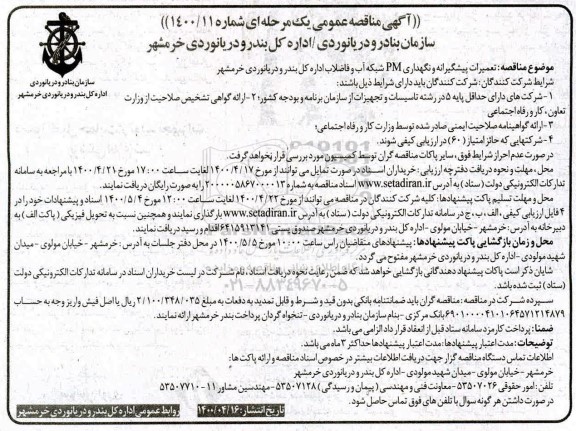 ((آگهی مناقصه عمومی یک مرحله ای شماره ۱۴۰۰/۱۱))
سازمان بنادر و دریانوردی / اداره کل بندر و دریانوردی خرمشهر
سازمان بنادر و دریانوردی
اداره کل بندر و دریانوردی خرمشهر
موضوع مناقصه: تعمیرات پیشگیرانه و نگهداری PM شبکه آب و فاضلاب اداره کل بندر و دریانوردی خرمشهر
شرایط شرکت کنندگان: شرکت کنندگان باید دارای شرایط ذیل باشند:
۱-شرکت های دارای حداقل پایه ۵ در رشته تاسیسات و تجهیزات از سازمان برنامه و بودجه کشور؛ ۲-ارائه گواهی تشخیص صلاحیت از وزارت
تعاون، کار و رفاه اجتماعی
۳-ارائه گواهینامه صلاحیت ایمنی صادر شده توسط وزارت کار و رفاه اجتماعی؛
۴-شرکتهایی که حائز امتیاز (۶۰) در ارزیابی کیفی شوند.
در صورت عدم احراز شرایط فوق، سایر پاکات مناقصه گران توسط کمیسیون مورد بررسی قرار نخواهد گرفت.
محل، مهلت و نحوه دریافت دفترچه ارزیابی: خریداران اسناد در صورت تمایل می توانند از مورخ ۱۴۰۰/۴/۱۷ لغایت ساعت ۱۷:۰۰ مورخ ۱۴۰۰/۴/۲۱ با مراجعه به سامانه
تدارکات الکترونیکی دولت (ستاد) به آدرس www.setadiran.ir اسناد مناقصه به شماره ۲۰۰۰۰۰۵۸۶۷۰۰۰۰۱۳ را به صورت رایگان دریافت نمایند.
محل و مهلت تسلیم پاکت پیشنهادها: کلیه شرکت کنندگان در مناقصه می توانند از مورخ ۱۴۰۰/۴/۲۲ لغایت ساعت ۱۲:۰۰ مورخ ۱۴۰۰/۵/۴ اسناد و پیشنهادات خود را در
۴ فایل ارزیابی کیفی، الف، ب، ج در سامانه تدارکات الکترونیکی دولت (ستاد) به آدرس www.setadiran.ir بارگذاری نمایند و همچنین نسبت به تحویل فیزیکی (پاکت الف) به
دبیرخانه به آدرس: خرمشهر - خیابان مولوی - اداره کل بندر و دریانوردی خرمشهر صندوق پستی ۶۴۱۵۹۱۳۱۴۱ اقدام و رسید دریافت نمایند.
محل و زمان بازگشایی پاکت پیشنهادها: پیشنهادهای متقاضیان راس ساعت ۱۰:۰۰ مورخ ۱۴۰۰/۵/۵ در محل دفتر جلسات به آدرس: خرمشهر - خیابان مولوی - میدان
شهید مولودی - اداره کل بندر و دریانوردی خرمشهر مفتوح می گردد.
شایان ذکر است پاکات پیشنهاد دهندگانی بازگشایی خواهد شد که ضمن رعایت نحوه دریافت اسناد، نام شرکت در لیست خریداران اسناد در سامانه تدارکات الکترونیکی دولت
(ستاد) ثبت شده باشد.
سپرده شرکت در مناقصه: مناقصه گران باید ضمانتنامه بانکی بدون قید و شرط و قابل تمدید به دفعات به مبلغ ۲/۱۰۰/۳۴۸/۰۳۵ ریال یا اصل فیش واریز وجه به حساب
۴۰۱۰۶۴۵۷۱۲۱۴۸۷۹ بانک مرکزی - بنام سازمان بنادر و دریانوردی - تنخواه گردان پرداخت بندر خرمشهر ارائه نمایند.
ضمنا: پرداخت کارمزد سامانه ستاد قبل از انعقاد قرارداد الزامی می باشد.
توضیحات: مدت اعتبار پیشنهادها: مدت اعتبار پیشنهادها حداکثر ۳ ماه می باشد.
اطلاعات تماس دستگاه مناقصه گزار جهت دریافت اطلاعات بیشتر در خصوص اسناد مناقصه و ارائه پاکت ها:
خرمشهر - خیابان مولوی - میدان شهید مولودی - اداره کل بندر و دریانوردی خرمشهر
تلفن: امور حقوقی ۵۳۵۰۷۰۲۶ - معاونت فنی و مهندسی (پیمان و رسیدگی) ۵۳۵۰۷۱۲۸ - مهندسین مشاور ۱۱-۵۳۵۰۷۷۱۰
در صورت داشتن هر گونه سوال با تلفن های فوق تماس حاصل شود.
تاریخ انتشار: ۱۴۰۰/۰۴/۱۶
روابط عمومی اداره کل بندر و دریانوردی خرمشهر
۰۲۱-۸۸۳۴۹۶۷۰-۵